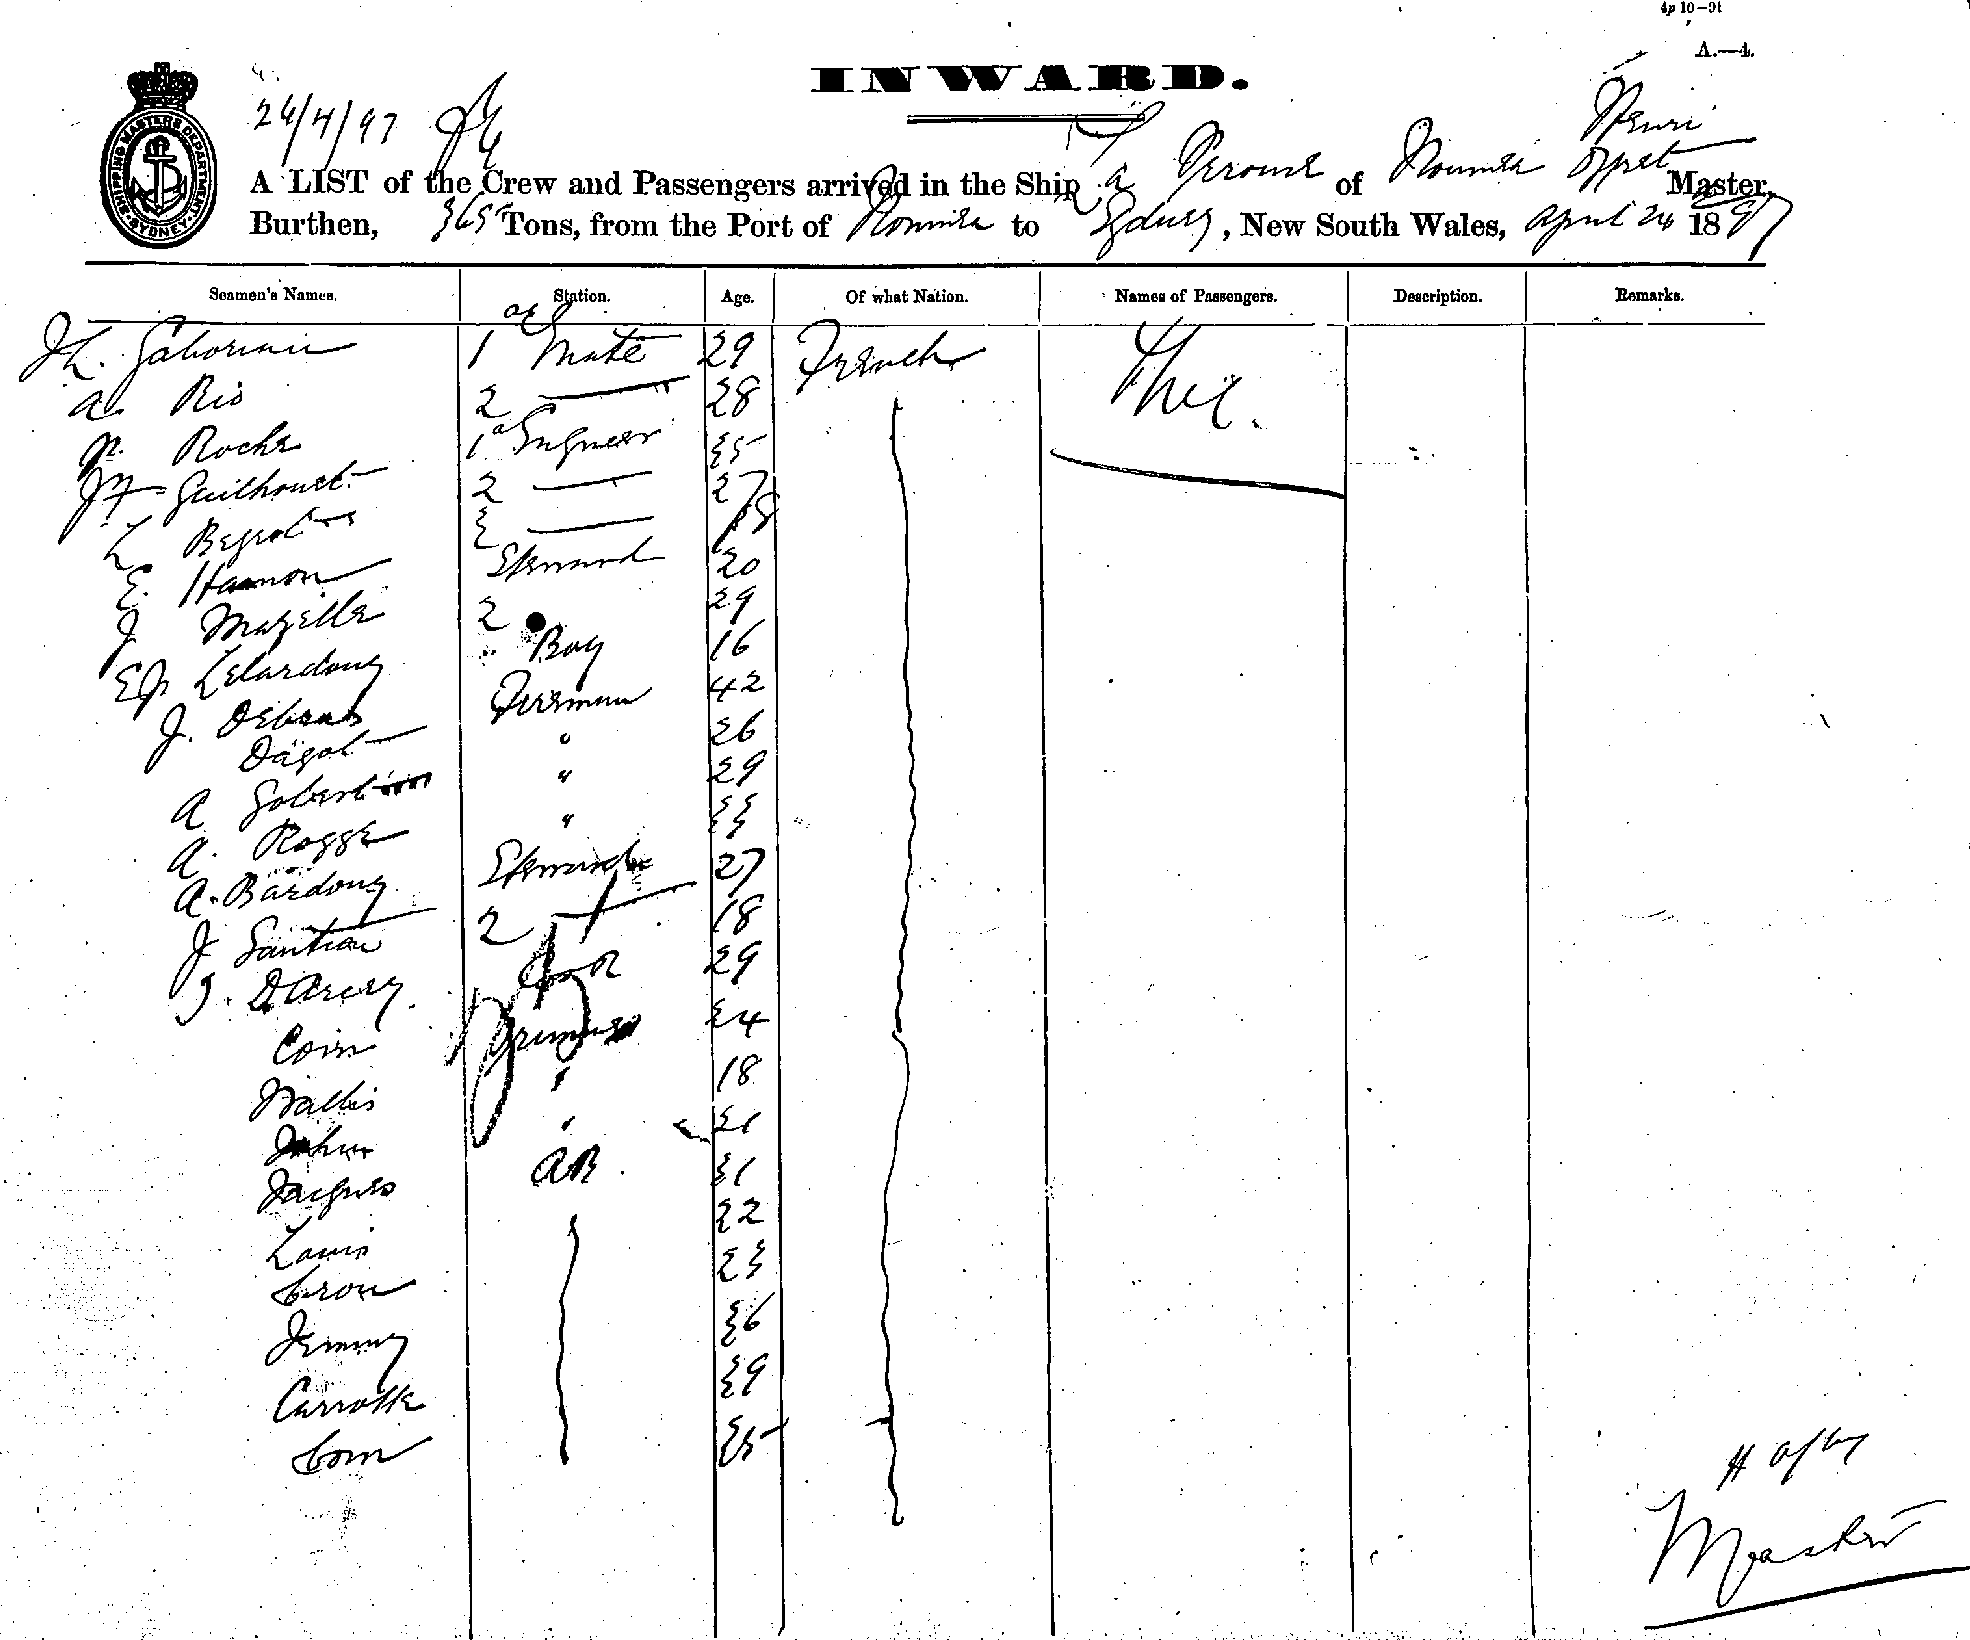 4p 10—91
A.—4.
INWARD.
24/4/97
SHIPPING MASTERS DEPARTMENT SYDNEY
Henri
A LIST of the Crew and Passengers arrived in the Ship La Perouse of Noumea Opret Master,
Burthen, 365 Tons, from the Port of Noumea to Sydney, New South Wales, April 24 1897
Seamen's Names. Station. Age. Of what Nation. Names of Passengers. Description. Remarks.
1 Mate 29 French
A Rio 2 — 28
P. Roche 1 Engineer 35
Guilhouet 2 — 27
L 3 — 18
E. Hamon Steward 20
J Mazelle 2 " 29
EP Lelardoux " Boy 16
J. Debras Fireman 42
Dagot " 26
A Gobert " 29
A. Rogge " 33
A. Bardoux Steward 27
J Santian 2 — 18
J. DArcy Cook 29
Coin Trimmer 34
Wallis " 18
John " 31
Jacques AB 31
Louis 32
Crou 23
Jemmy 36
Carrotte 39
Com 35
Master